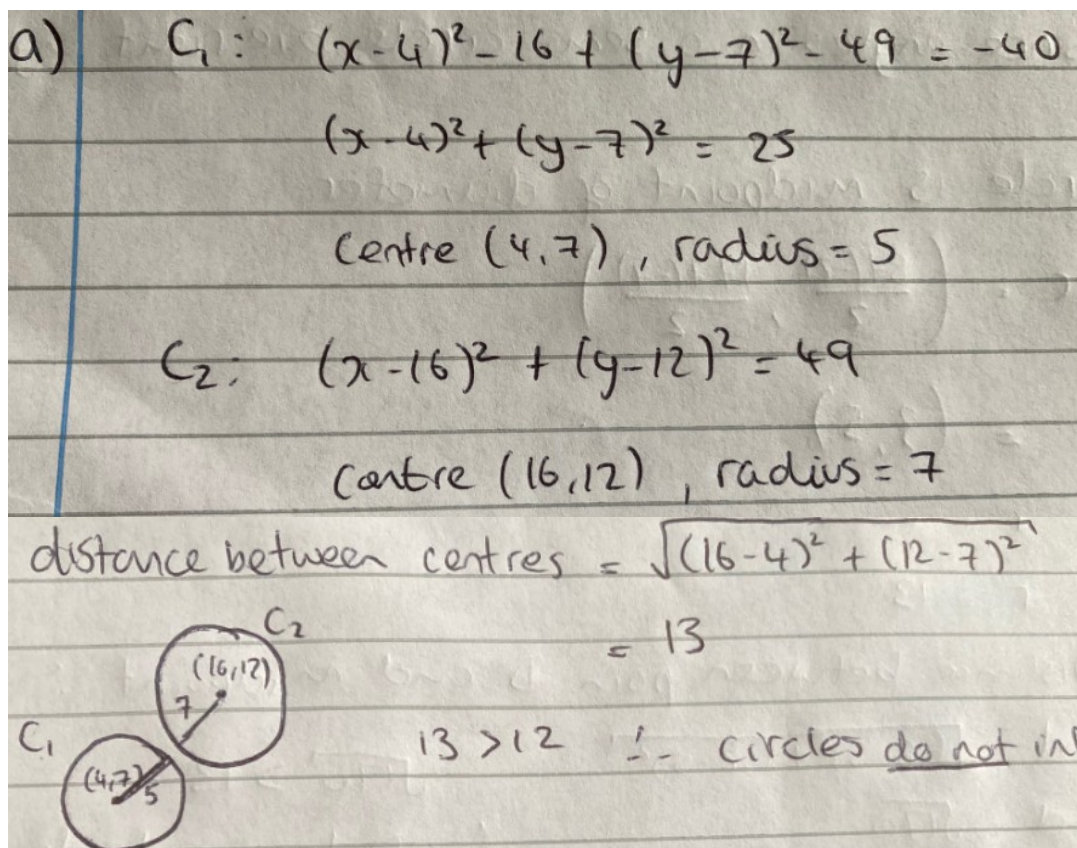 a) C₁: (x-4)² - 16 + (y-7)² - 49 = -40
(x-4)² + (y-7)² = 25
Centre (4,7), radius = 5
C₂: (x-16)² + (y-12)² = 49
centre (16,12), radius = 7
distance between centres = √((16-4)² + (12-7)²)
= 13
C₂
(16,12)
7
13 > 12 ∴ circles do not in
C₁
(4,7)
5